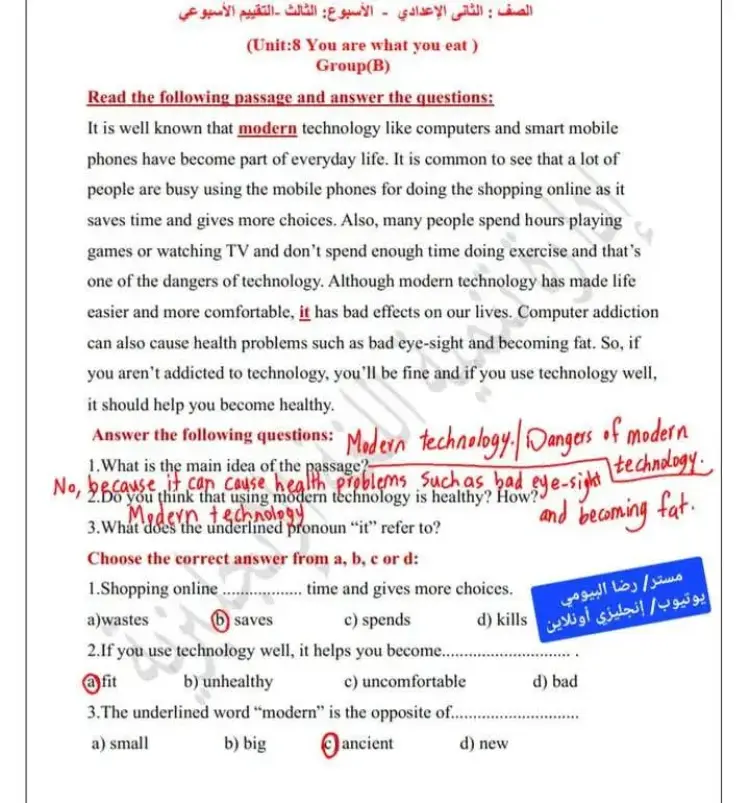 الصف : الثانى الإعدادي - الأسبوع: الثالث -التقييم الأسبوعي
(Unit:8 You are what you eat )
Group(B)
Read the following passage and answer the questions:
It is well known that modern technology like computers and smart mobile
phones have become part of everyday life. It is common to see that a lot of
people are busy using the mobile phones for doing the shopping online as it
saves time and gives more choices. Also, many people spend hours playing
games or watching TV and don't spend enough time doing exercise and that's
one of the dangers of technology. Although modern technology has made life
easier and more comfortable, it has bad effects on our lives. Computer addiction
can also cause health problems such as bad eye-sight and becoming fat. So, if
you aren't addicted to technology, you'll be fine and if you use technology well,
it should help you become healthy.
Answer the following questions:
Modern technology./Dangers of modern
technology.
1.What is the main idea of the passage?
No, because it can cause health problems such as bad eye-sight
and becoming fat.
2.Do you think that using modern technology is healthy? How?
Modern technology
3.What does the underlined pronoun "it" refer to?
Choose the correct answer from a, b, c or d:
1.Shopping online .................. time and gives more choices.
a)wastes b) saves c) spends d) kills
مستر/ رضا البيومي
يوتيوب/ إنجليزي أونلاين
2.If you use technology well, it helps you become............................. .
a)fit b) unhealthy c) uncomfortable d) bad
3.The underlined word "modern" is the opposite of.............................
a) small b) big c) ancient d) new
إدارة تنمية اللغة الإنجليزية